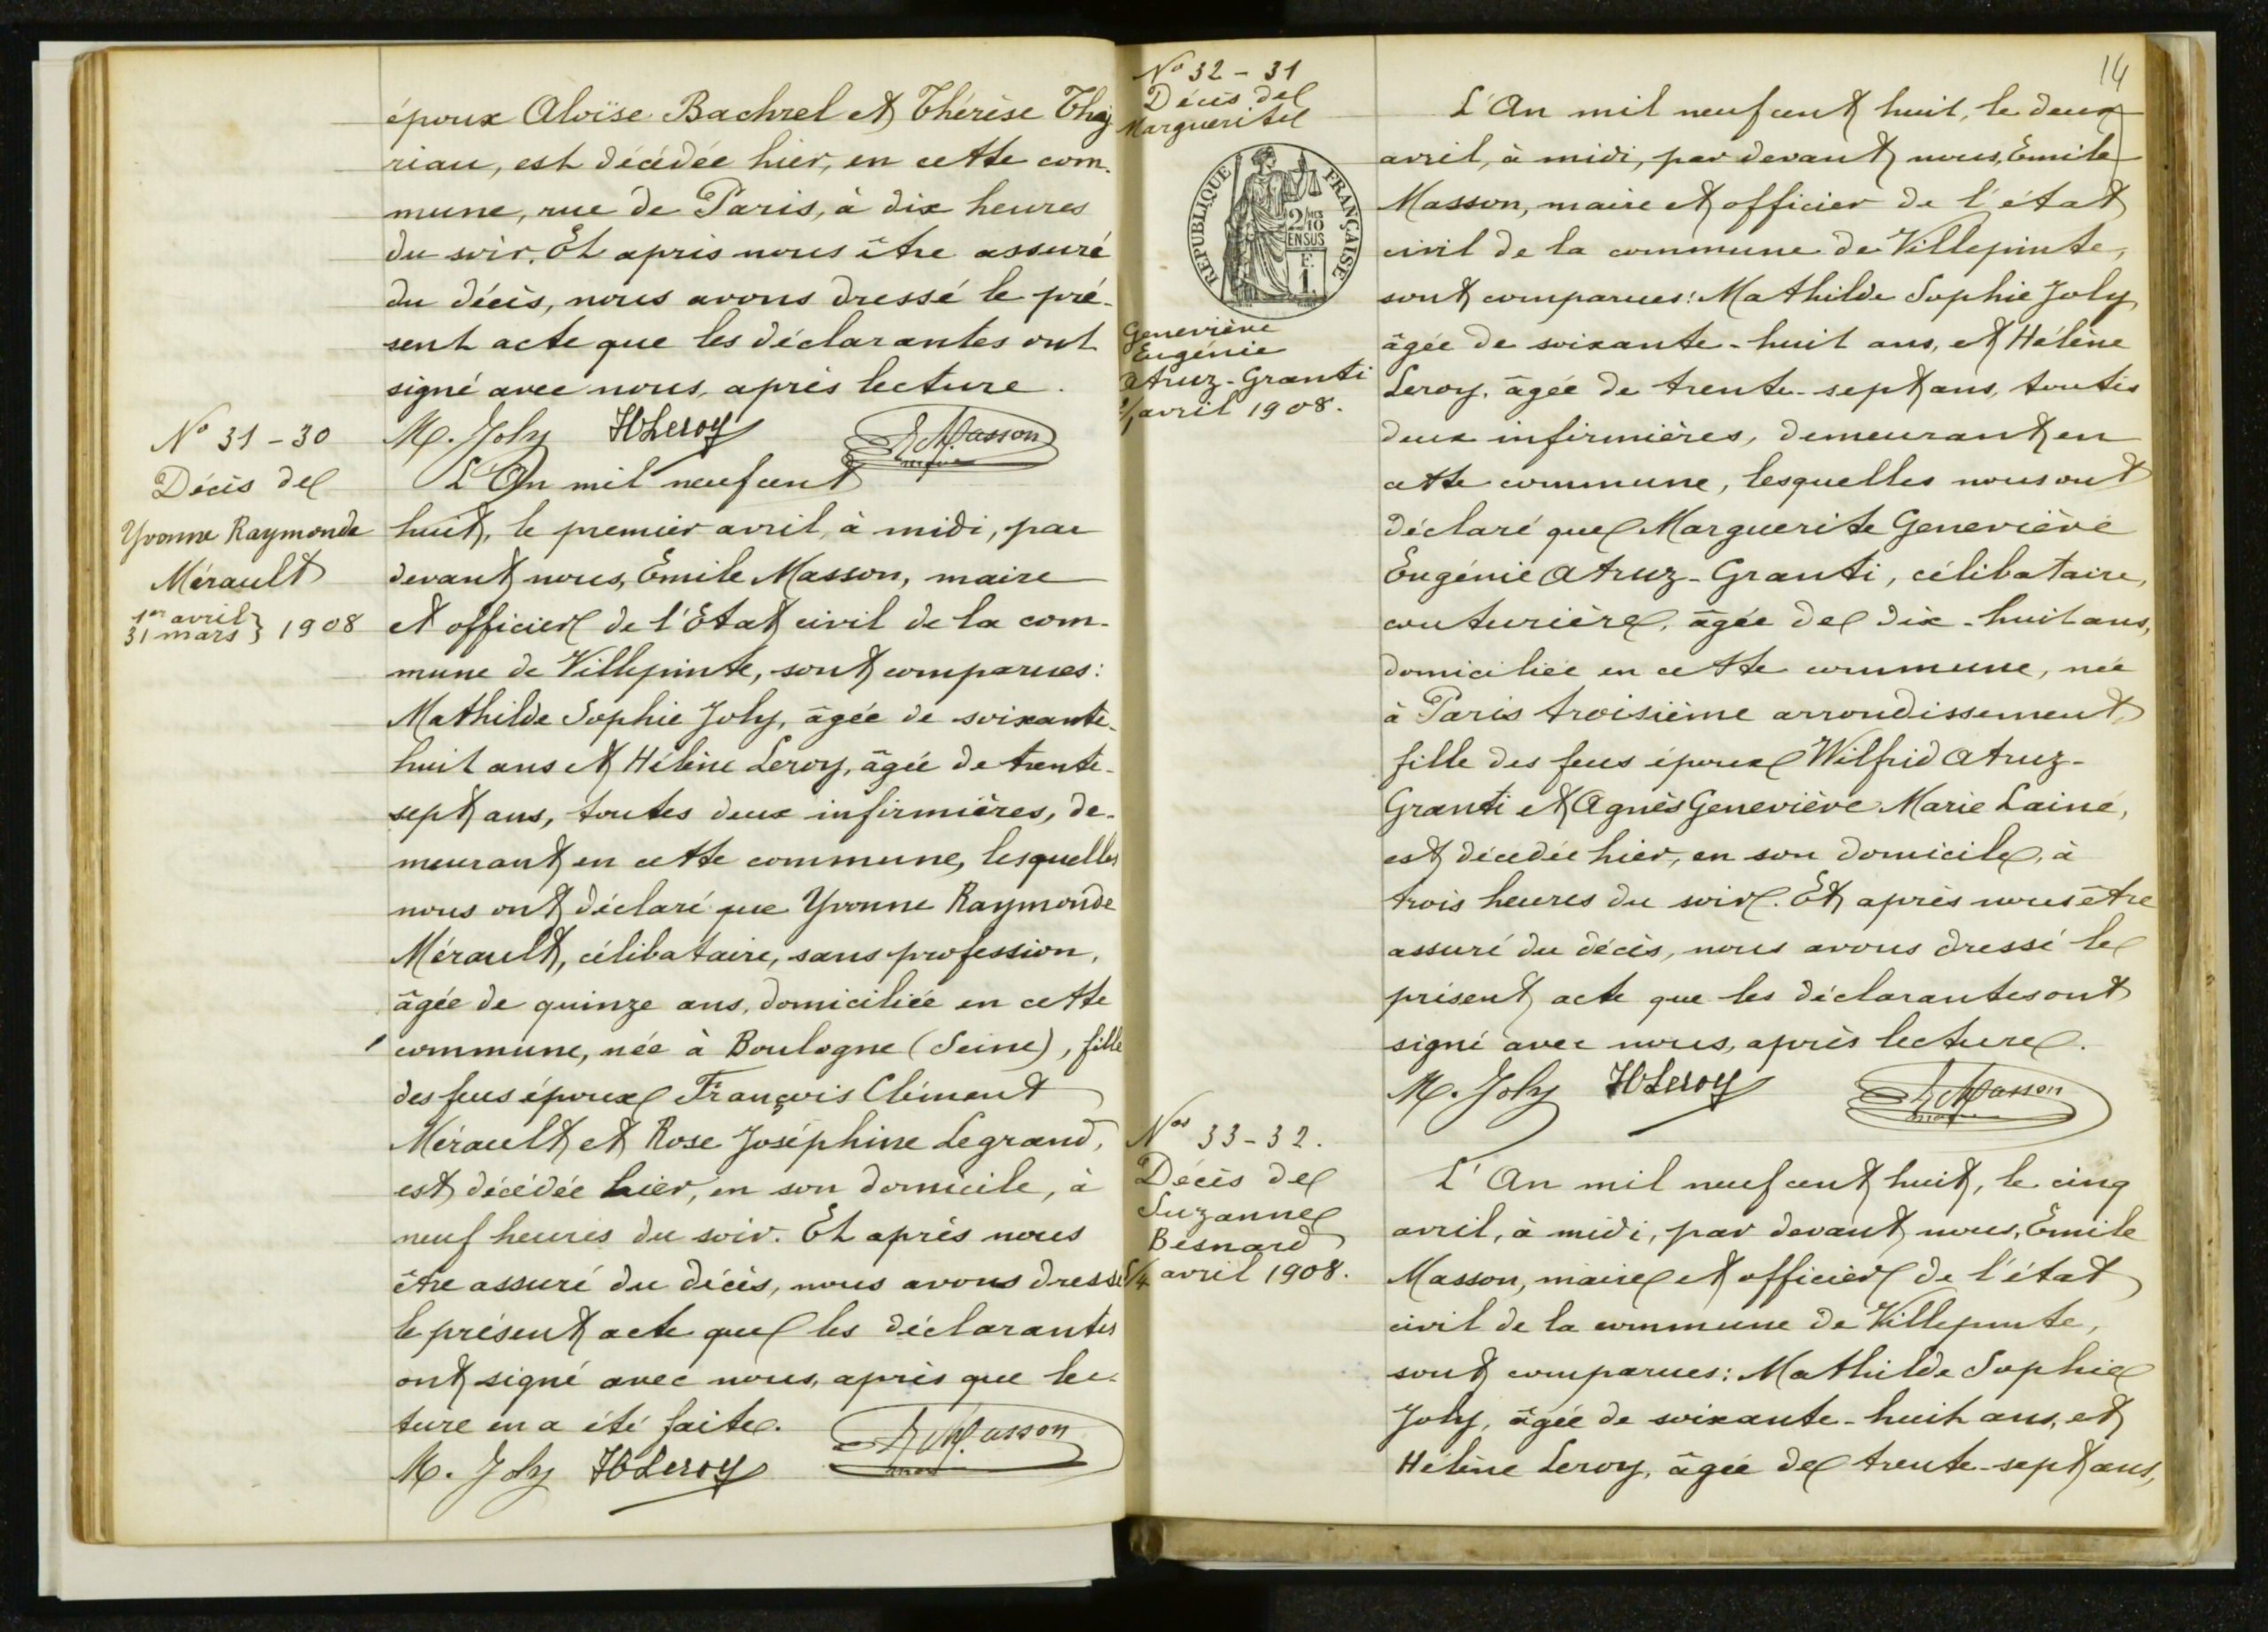 époux Aloïse Bachrel et Thérèse Thé
riau, est décédée hier, en cette com-
mune, rue de Paris, à dix heures
du soir. Et après nous être assuré
du décès, nous avons dressé le pré-
sent acte que les déclarantes ont
signé avec nous, après lecture.
M. Joly HLeroy EMasson
N° 31-30
Décès de
Yvonne Raymonde
Mérault
1er avril
31 mars } 1908
L'An mil neuf cent
huit, le premier avril, à midi, par
devant nous, Emile Masson, maire
et officier de l'Etat civil de la com-
mune de Villepinte, sont comparues:
Mathilde Sophie Joly, âgée de soixante-
huit ans et Hélène Leroy, âgée de trente-
sept ans, toutes deux infirmières, de-
meurant en cette commune, lesquelles
nous ont déclaré que Yvonne Raymonde
Mérault, célibataire, sans profession,
âgée de quinze ans, domiciliée en cette
commune, née à Boulogne (Seine), fille
des feus époux François Clément
Mérault et Rose Joséphine Legrand,
est décédée hier, en son domicile, à
neuf heures du soir. Et après nous
être assuré du décès, nous avons dressé
le présent acte que les déclarantes
ont signé avec nous, après que lec-
ture en a été faite.
M. Joly HLeroy EMasson
14
N° 32-31
Décès de
Marguerite
REPUBLIQUE FRANÇAISE
2/10
EN SUS
F.
1.
Geneviève
Eugénie
Atruz-Granti
2/1 avril 1908.
L'An mil neuf cent huit, le deux
avril, à midi, par devant nous, Emile
Masson, maire et officier de l'état
civil de la commune de Villepinte,
sont comparues: Mathilde Sophie Joly
âgée de soixante-huit ans, et Hélène
Leroy, âgée de trente-sept ans, toutes
deux infirmières, demeurant en
cette commune, lesquelles nous ont
déclaré que Marguerite Geneviève
Eugénie Atruz-Granti, célibataire,
couturière, âgée de dix-huit ans,
domiciliée en cette commune, née
à Paris troisième arrondissement,
fille des feus époux Wilfrid Atruz-
Granti et Agnès Geneviève Marie Lainé,
est décédée hier, en son domicile, à
trois heures du soir. Et après nous être
assuré du décès, nous avons dressé le
présent acte que les déclarantes ont
signé avec nous, après lecture.
M. Joly HLeroy EMasson
Nos 33-32.
Décès de
Suzanne
Besnard
5/4 avril 1908.
L'An mil neuf cent huit, le cinq
avril, à midi, par devant nous, Emile
Masson, maire et officier de l'état
civil de la commune de Villepinte,
sont comparues: Mathilde Sophie
Joly, âgée de soixante-huit ans, et
Hélène Leroy, âgée de trente-sept ans,